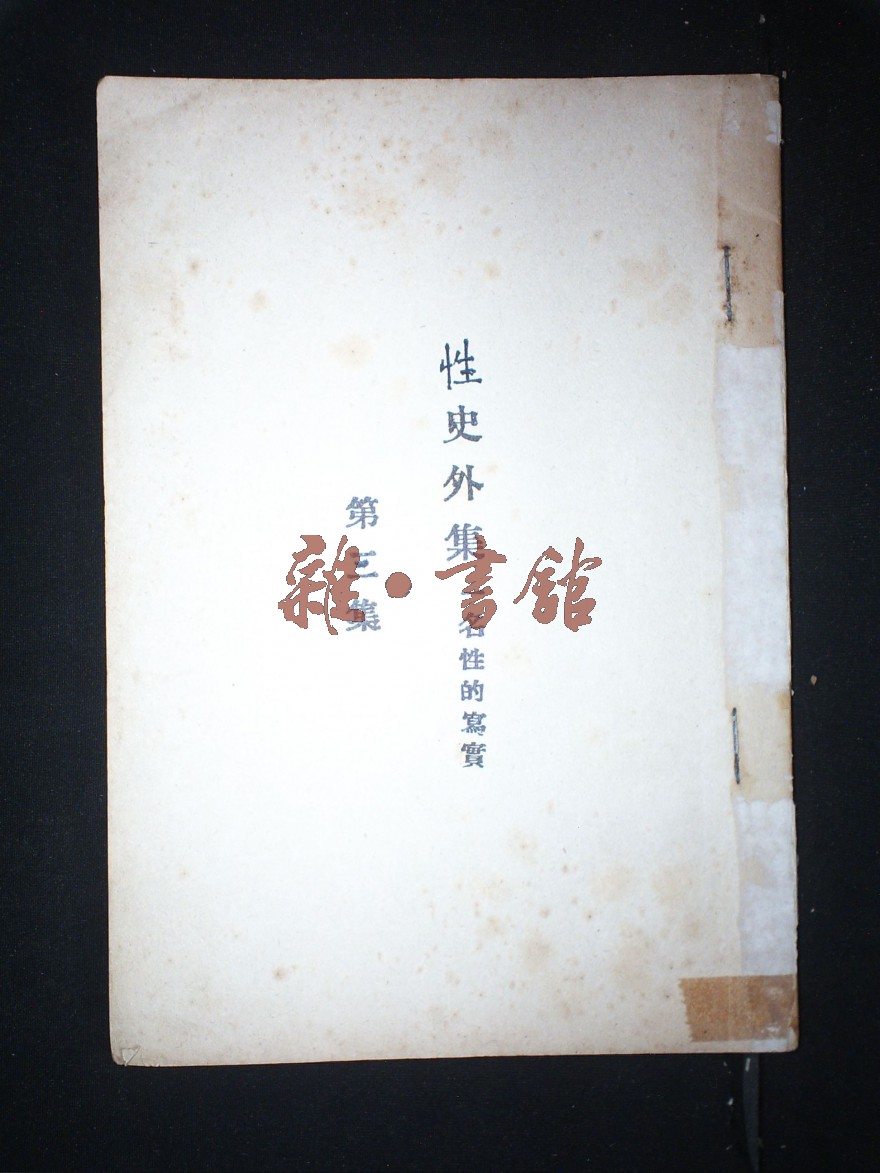 性史外集一名性的寫實
第三集
雜·書館